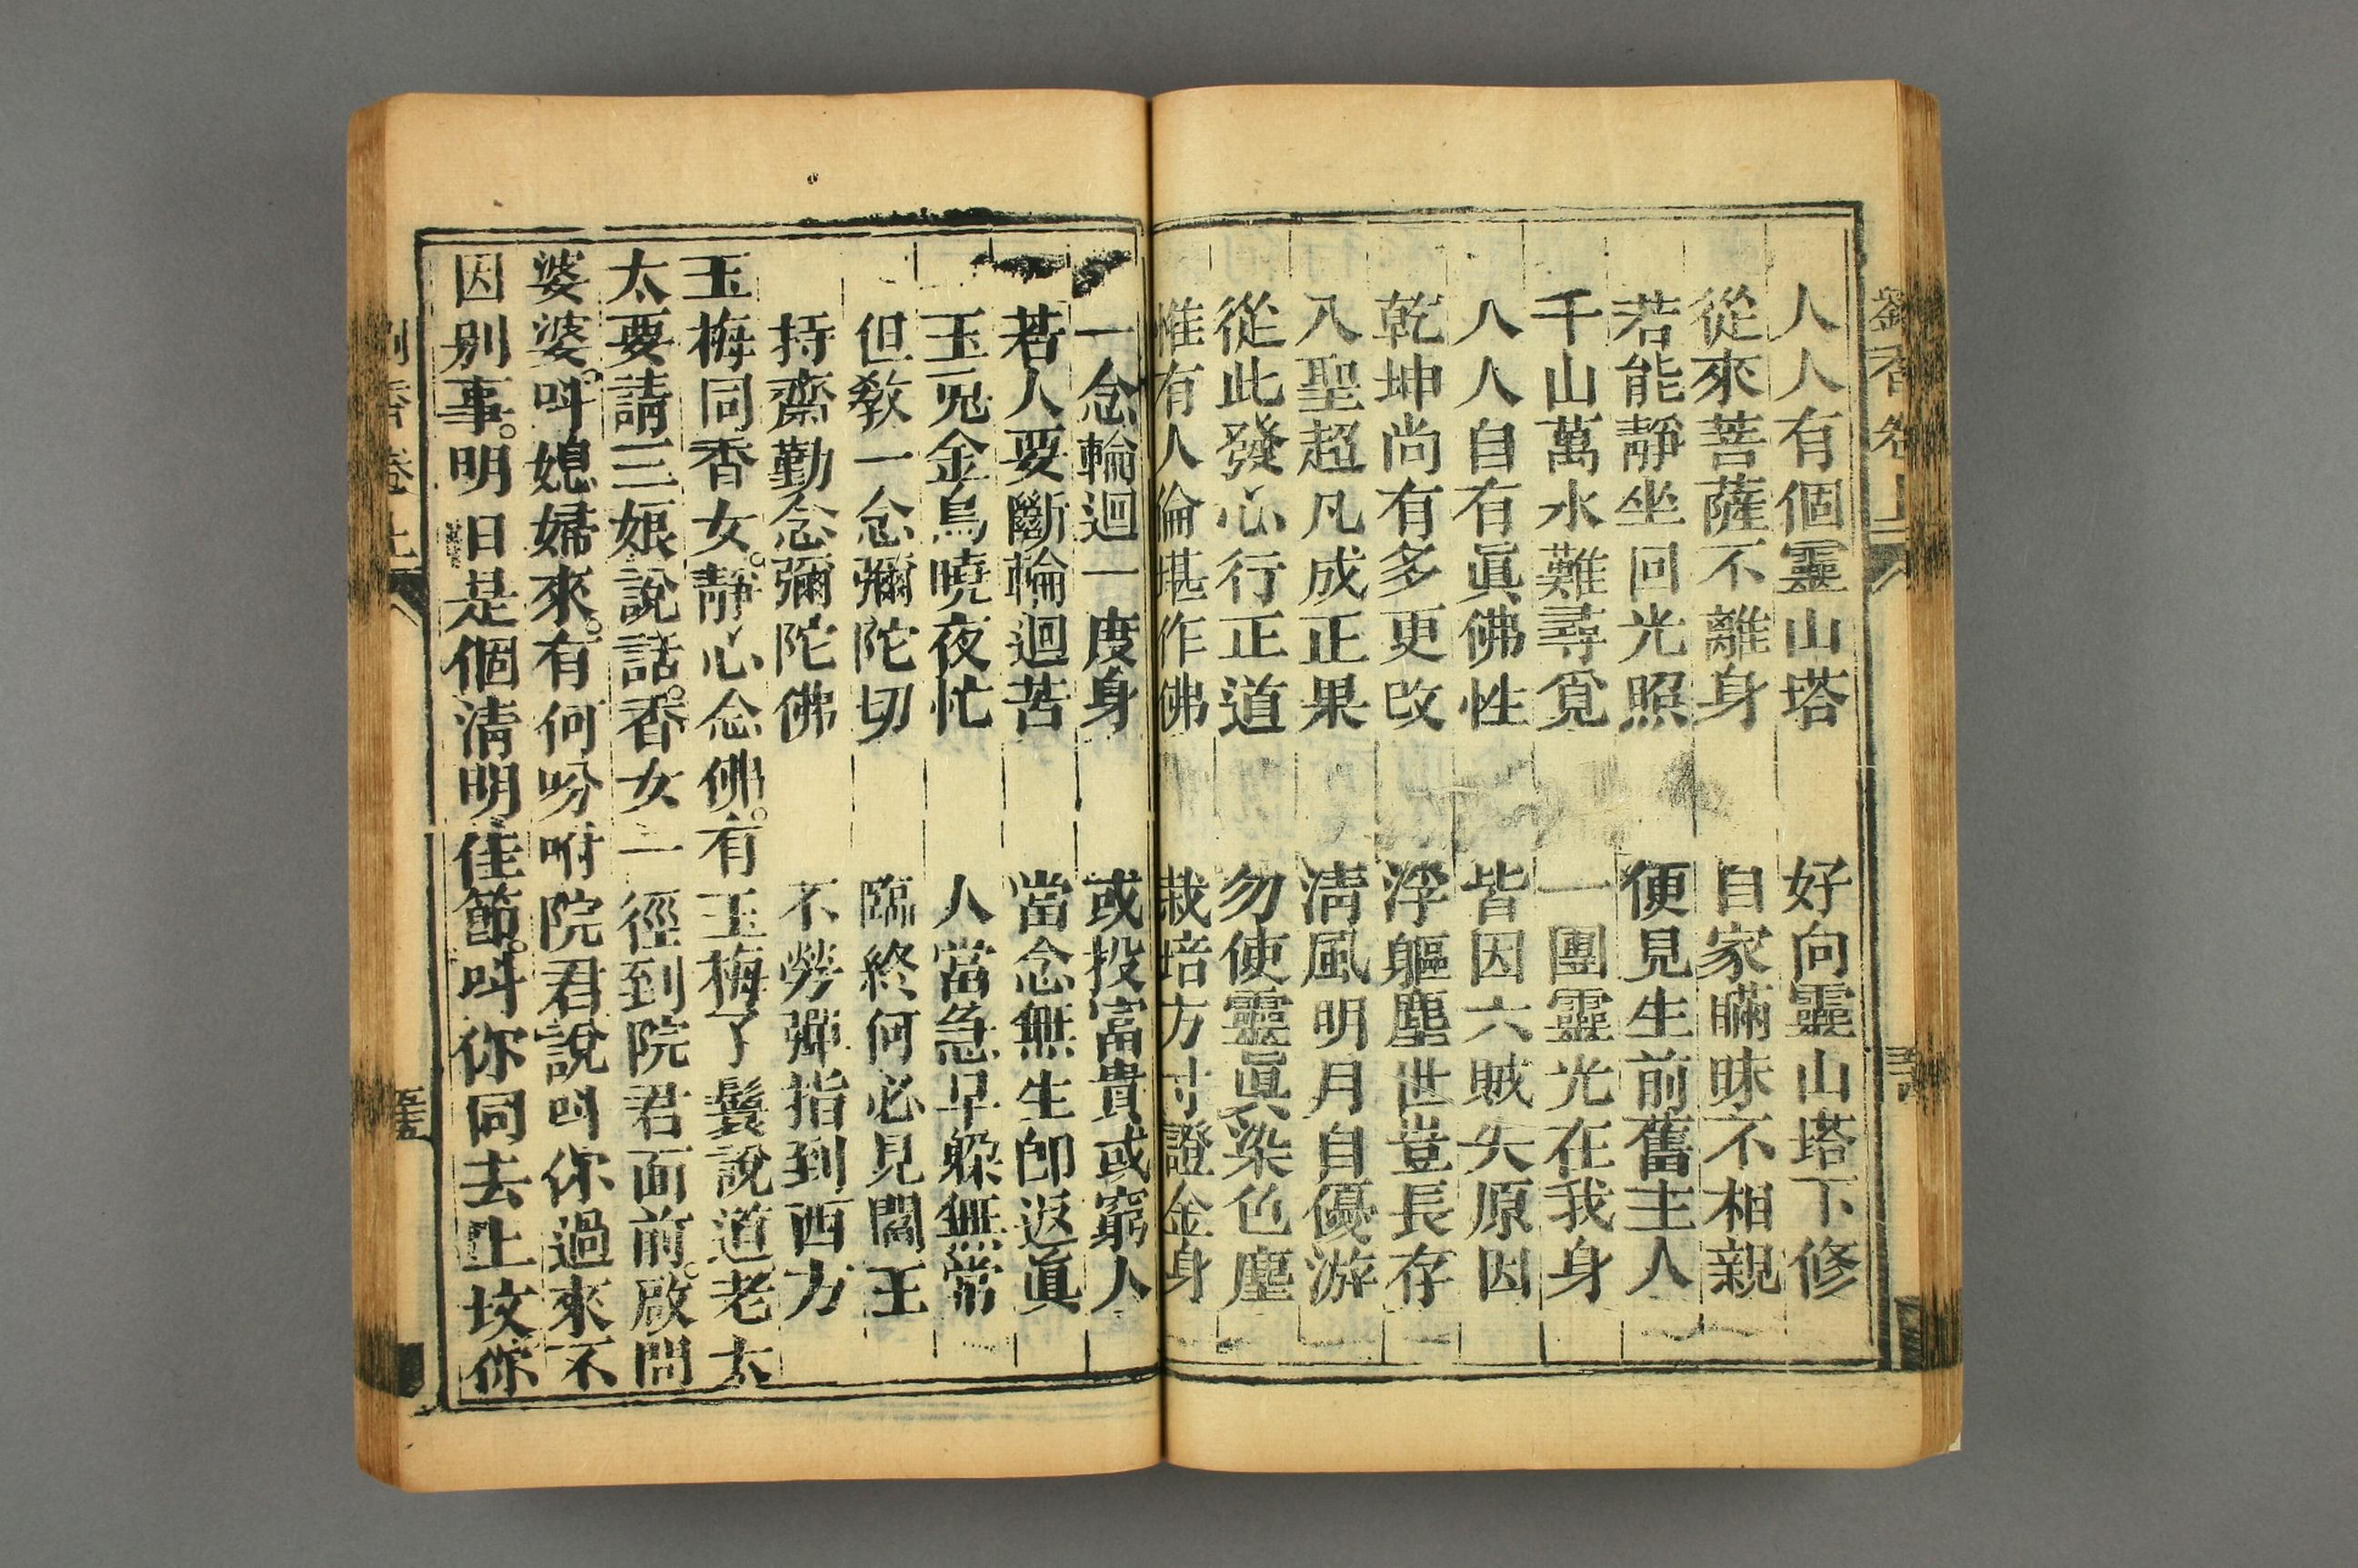 人人有個靈山塔 好向靈山塔下修
從來菩薩不離身 自家瞞昧不相親
若能靜坐回光照 便見生前舊主人
千山萬水難尋覓 一團靈光在我身
人人自有眞佛性 皆因六賊失原因
乾坤尚有多更改 浮軀塵世豈長存
入聖超凡成正果 淸風明月自優游
從此發心行正道 勿使靈眞染色塵
惟有人倫堪作佛 栽培方寸證金身
一念輪迴一度身 或投富貴或窮人
若人要斷輪迴苦 當念無生卽返眞
玉兎金烏曉夜忙 人當急早躱無常
但教一念彌陀切 臨終何必見閻王
持齋勤念彌陀佛 不勞彈指到西方
玉梅同香女。靜心念佛。有玉梅了鬟說道老太
太要請三娘說話。香女一徑到院君面前。啟問
婆婆。呌媳婦來。有何吩咐院君說呌你過來不
因別事。明日是個淸明佳節。呌你同去上坟你
劉香卷上